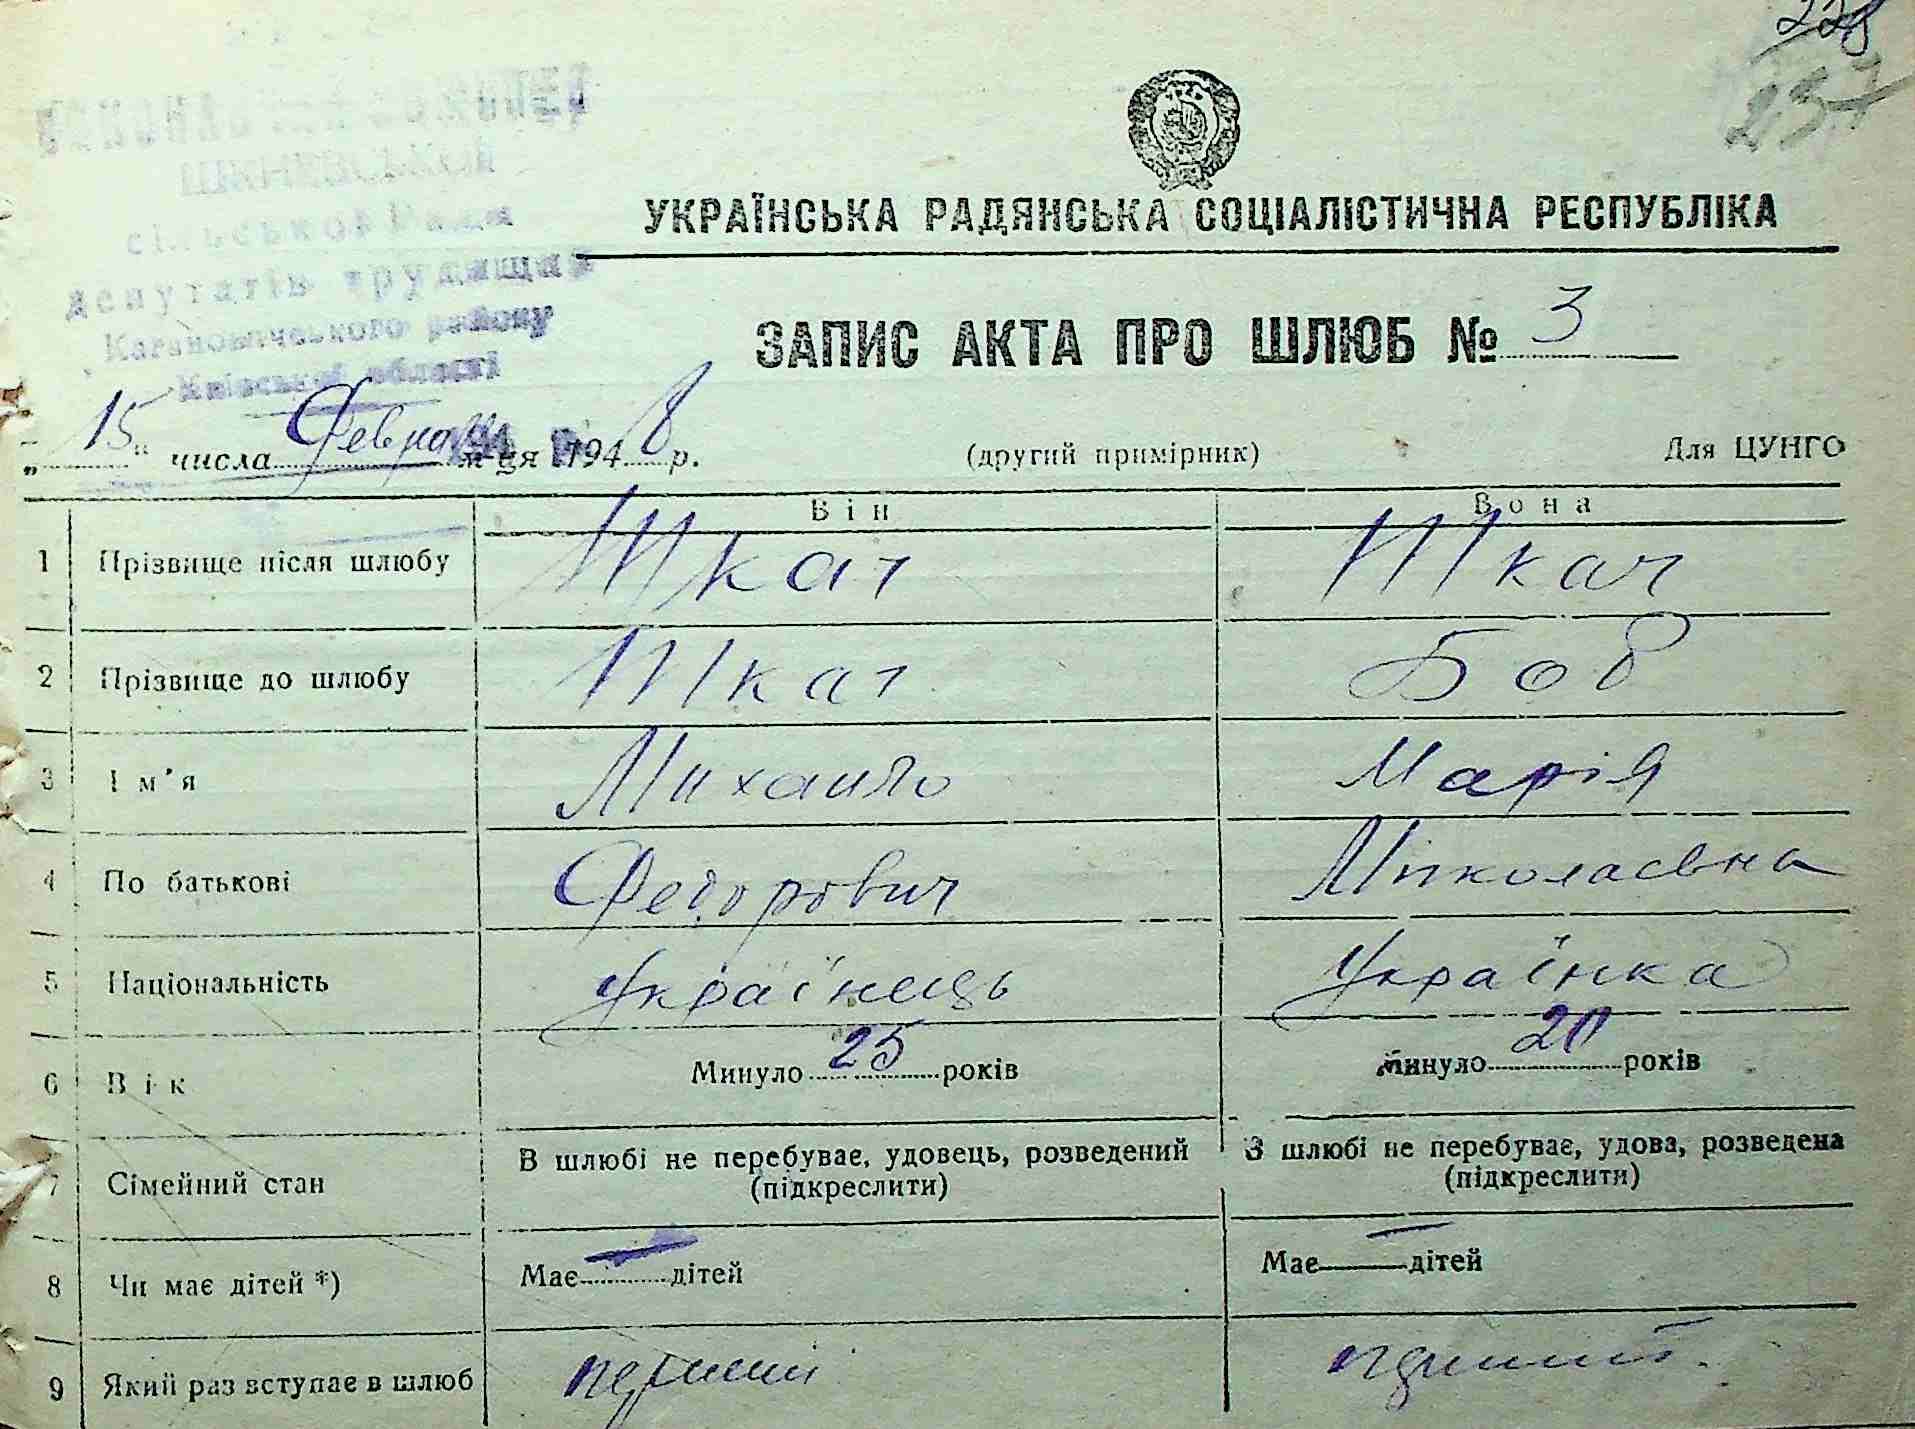 228
237
ШКНЕВСЬКОЙ
сільської Ради
депутатів трудящих
Кагановичського району
Київської області
УКРАЇНСЬКА РАДЯНСЬКА СОЦІАЛІСТИЧНА РЕСПУБЛІКА
ЗАПИС АКТА ПРО ШЛЮБ № 3
„15" числа Февраля м-ця 1948 р. (другий примірник) Для ЦУНГО
Він Вона
1 Прізвище після шлюбу Ткач Ткач
2 Прізвище до шлюбу Ткач Боб
3 Ім'я Михаило Марія
4 По батькові Федорович Миколаевна
5 Національність Українець Українка
6 Вік Минуло 25 років Минуло 20 років
7 Сімейний стан В шлюбі не перебуває, удовець, розведений (підкреслити) З шлюбі не перебуває, удова, розведена (підкреслити)
8 Чи має дітей *) Має — дітей Має — дітей
9 Який раз вступає в шлюб перший перший